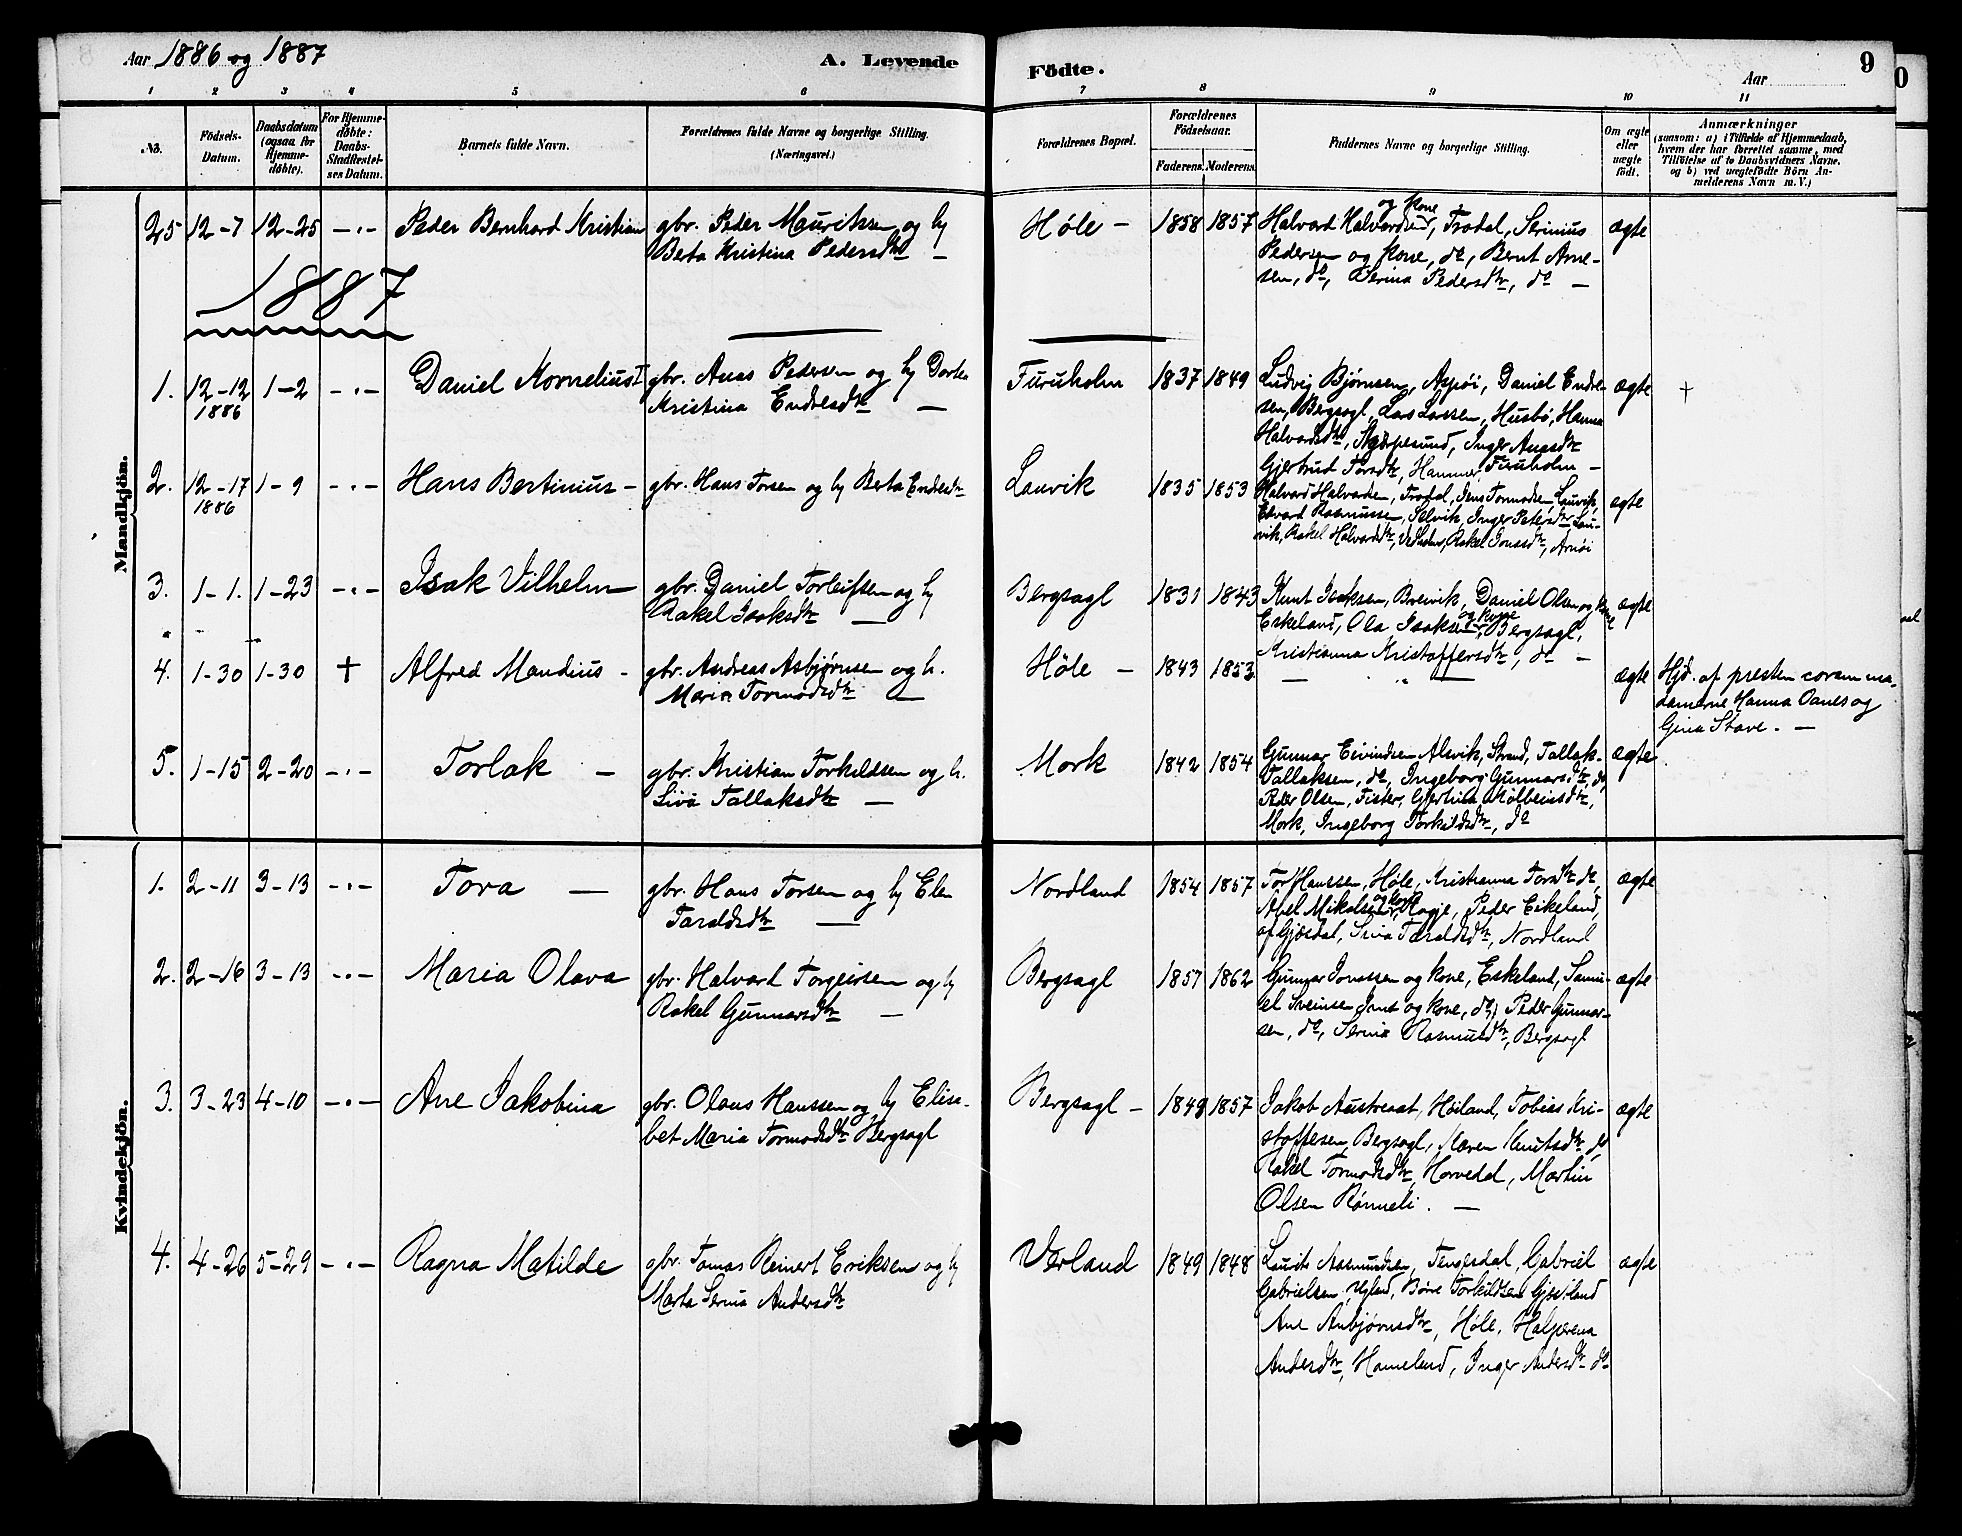 Aar 1886 og 1887
A. Levende
Födte.
Aar
9
1 2 3 4 5 6 7 8 9 10 11
No.
Födsels-
Datum.
Daabsdatum
(ogsaa for
Hjemme-
döbte).
For Hjemme-
döbte:
Daabs-
Stadfæstel-
ses Datum.
Barnets fulde Navn.
Forældrenes fulde Navne og borgerlige Stilling.
(Næringsvei.)
Forældrenes Bopæl.
Forældrenes
Födselsaar.
Faderens. Moderens.
Faddernes Navne og borgerlige Stilling.
Om ægte
eller
uægte
födt.
Anmærkninger
(saasom: a) i Tilfælde af Hjemmedaab,
hvem der har forrettet samme, med
Tilföielse af to Daabsvidners Navne.
og b) ved uægtefödte Börn An-
melderens Navn m. V.)
Mandkjön.
25 12-7 12-25 -"- Peder Bernhard Kristian
gbr. Peder Mauritsen og h
Berta Kristina Pedersdtr -
Høle - 1858 1857
Halvard Halvardsen og kone, Trodal, Serinius
Pedersen og kone, do, Bernt Arne-
sen, do, Berina Pedersdtr, do -
ægte
1887
1. 12-12 1-2 -"- Daniel Kornelius
1886
gbr. Anas Pedersen og h Dortea
Kristina Endresdtr -
Furuholm 1837 1849
Ludvig Bjørnsen, Aspøi, Daniel Endre-
sen, Bergsagl, Lars Larsen, Husbø, Hanna
Halvardsdtr, Inger Anasdtr
Furuholm -
ægte +
2. 12-17 1-9 -"- Hans Bertinius -
1886
gbr. Hans Torsen og h Berta Endresdtr
Lauvik 1835 1853
Gjertrud Torsdtr, Hammer
Halvard Halvardsen, Trodal, Jens Tormodsen, Lauvik,
Edvard Rasmussen, Selvik, Inger Petersdtr Lau-
vik, Rakel Halvardsdtr, Rakel Jonasdtr, Arnøi
ægte
3. 1-1. 1-23 -"- Isak Vilhelm
gbr. Daniel Torleifsen og h
Rakel Isaksdtr -
Bergsagl 1831 1843
Knut Isaksen, Breivik, Daniel Olsen og kone
Eskeland, Ola Isaksen og kone, Bergsagl,
Kristianna Kristoffersdtr, do -
ægte
4. 1-30 1-30 + Alfred Mandius -
gbr. Andreas Asbjørnsen og h.
Maria Tormodsdtr -
Høle - 1843 1853.
- " -
ægte
Hjd. af presten coram ma-
damerne Hanna Oanes og
Gina Stave. -
5. 1-15 2-20 -"- Torlak -
gbr. Kristian Torkildsen og h.
Siva Tallaksdtr -
Mork 1842 1854
Gunnar Eivindsen Alsvik, Strand, Tallak-
Tallaksen, do, Ingeborg Gunnarsdtr, do,
Peder Olsen, Fister, Gjertina Kolbeinsdtr,
Mork, Ingeborg Torkildsdtr, do
ægte
Kvindekjön.
1. 2-11 3-13 -"- Tora -
gbr. Hans Torsen og h Elen
Taraldsdtr -
Nordland 1854 1857
Tor Hanssen, Høle, Kristianna Torsdtr do,
Abel Mikalsen og kone, Ragje, Peder Eikeland,
af Gjesdal, Siva Taraldsdtr, Nordland
ægte
2. 2-16 3-13 -"- Maria Olava
gbr. Halvard Torgeirsen og h
Rakel Gunnarsdtr -
Bergsagl 1857 1862
Gunnar Jonassen og kone, Eskeland, Samu-
el Sveinsen og kone, do, Peder Gunnar-
sen, do, Serina Rasmusdtr, Bergsagl
ægte
3. 3-23 4-10 -"- Ane Jakobina
gbr. Olaus Hanssen og h Elisa-
bet Maria Tormodsdtr Bergsagl
Bergsagl - 1849 1857
Jakob Austreaat, Høiland, Tobias Kri-
stoffersen, Bergsagl, Maren Knutsdtr, do
Rakel Tormodsdtr, Horvedal, Martin
Olsen Rønneli. -
ægte
4. 4-26 5-29 -"- Ragna Matilde
gbr. Tomas Reinert Eriksen og h
Marta Serina Andersdtr
Verland 1849 1848
Lauits Aasmundsen, Tengesdal, Gabriel
Gabrielsen, Uglad, Børe Torkildsen Gjøsiland
Ane Anbjørnsdtr, Høle, Halperena
Andersdtr, Hameland, Inger Andersdtr do
ægte